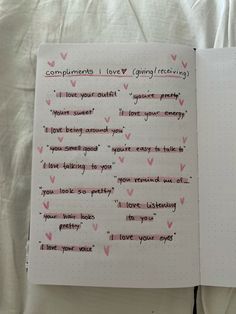 compliments I love ♥ (giving/receiving)
"I love your outfit" "you're pretty"
"you're sweet" "I love your energy"
"I love being around you"
"you smell good" "you're easy to talk to"
"I love talking to you"
"you remind me of..."
"you look so pretty"
"I love listening
to you"
"your hair looks
pretty"
"I love your eyes"
"I love your voice"